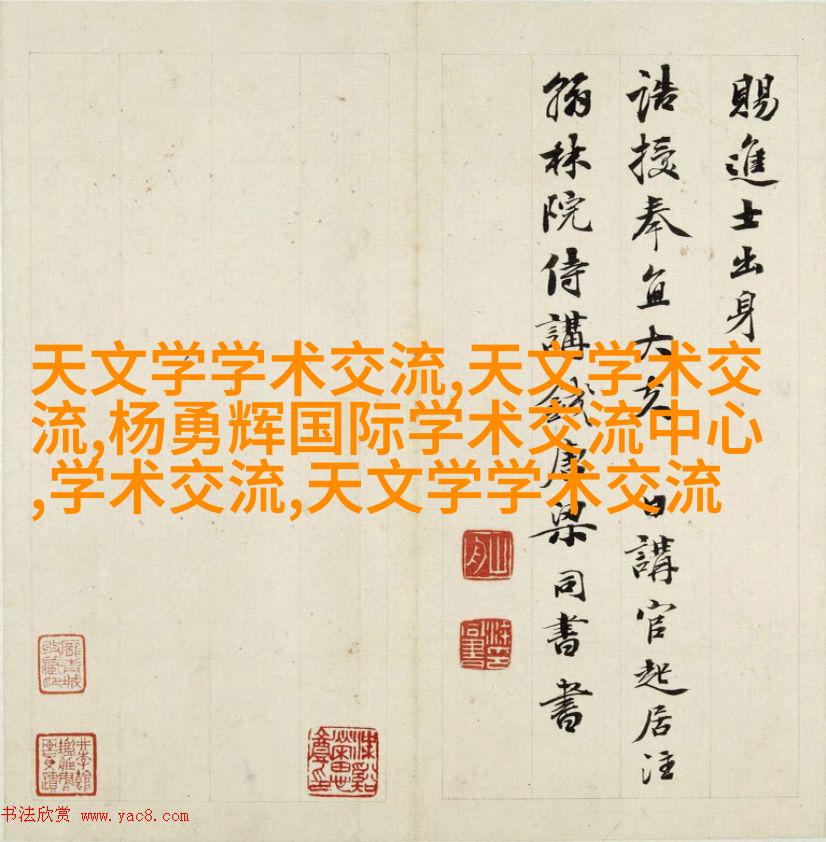 賜進士出身
誥授奉直大夫日講官起居注
翰林院侍講錢唐梁同書書
天文学学术交流,天文学术交
流,杨勇辉国际学术交流中心
,学术交流,天文学学术交流
书法欣赏 www.yac8.com